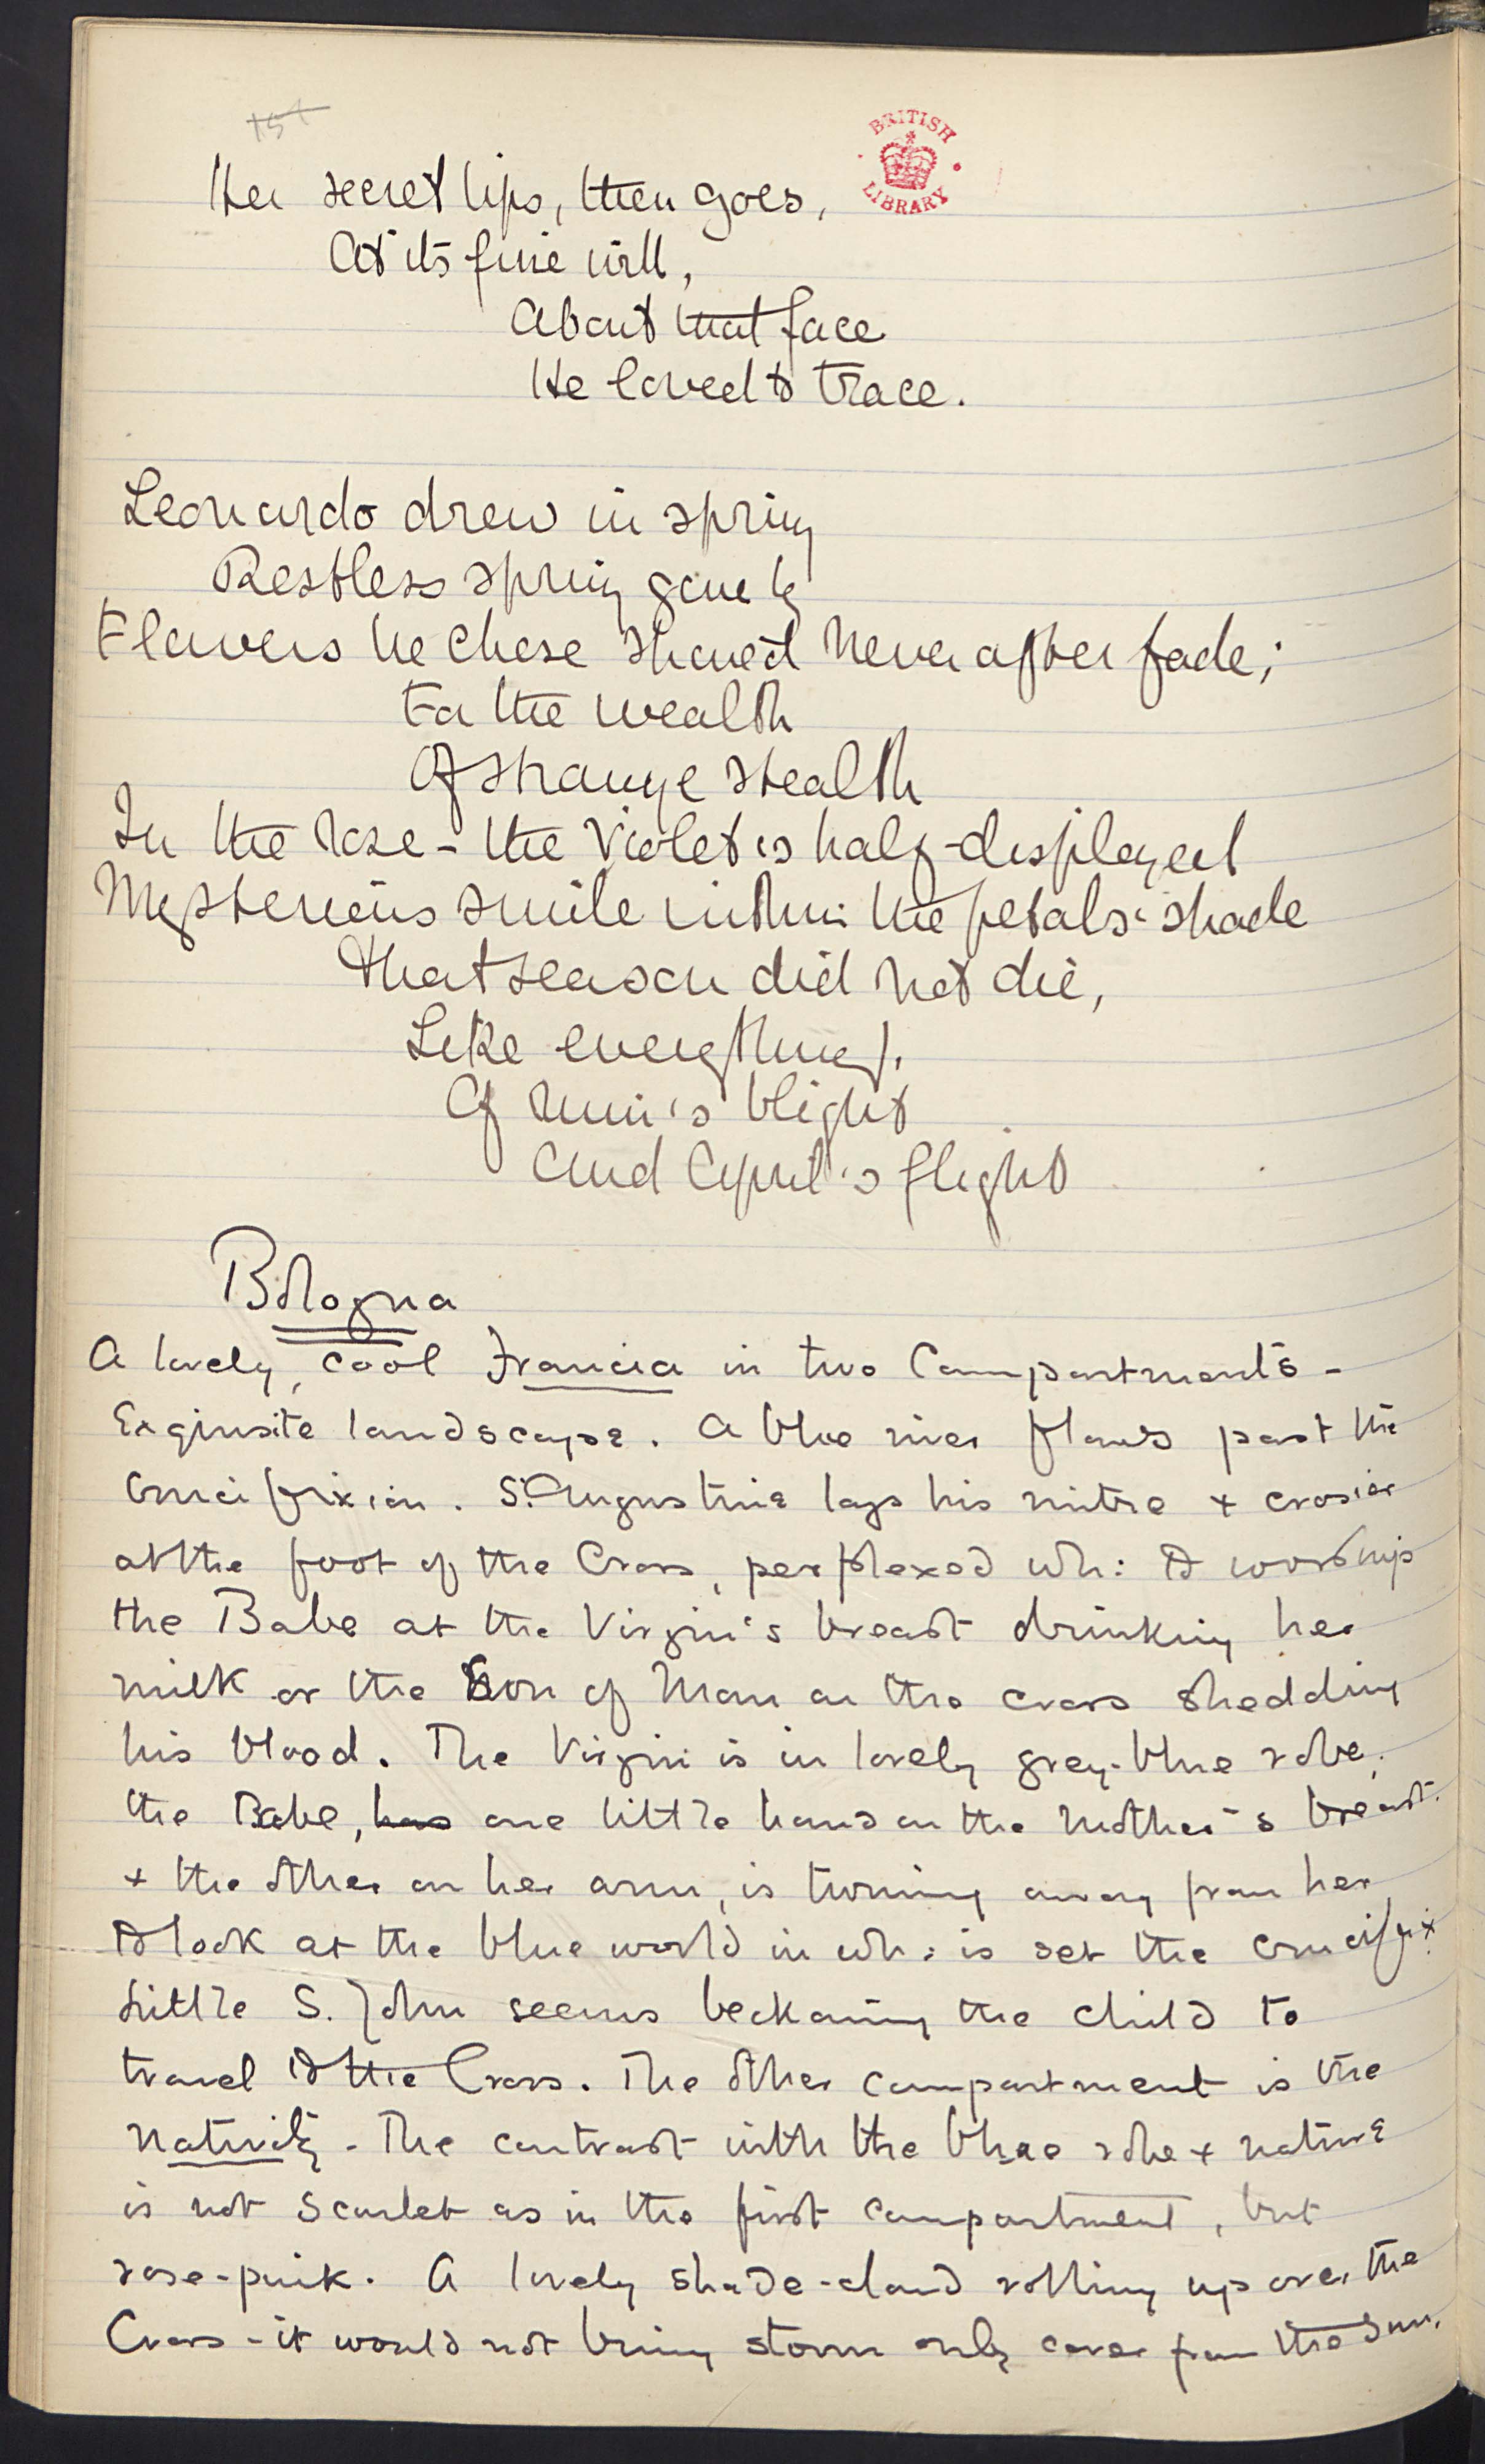 BRITISH LIBRARY
Her secret lips, then goes,
At its fine will,
About that face
He loved to trace.
Leonardo drew in spring
Restless spring gone by
Flowers he chose should never after fade;
For the wealth
Of strange stealth
In the rose – the violet's half-displayed
Mysterious smile within the petals' shade
That season did not die,
Like everything,
Of ruin's blight
And April's flight
Bologna
A lovely, cool Francia in two Compartments –
Exquisite landscape. A blue river flows past the
Crucifixion. S. Augustine lays his mitre + crosier
at the foot of the Cross, perplexed wh: to worship
the Babe at the Virgin's breast drinking her
milk or the Son of Man on the cross shedding
his blood. The Virgin is in lovely grey-blue robe.
the Babe, has one little hand on the Mother's breast.
+ the other on her arm, is turning away from her
to look at the blue world in wh: is set the crucifix.
Little S. John seems beckoning the child to
travel to the Cross. The other compartment is the
Nativity – The contrast with the blue robe + nature
is not scarlet as in the first compartment, but
rose-pink. A lovely shade-cloud rolling up over the
Cross – it would not bring storm only cover from the sun.